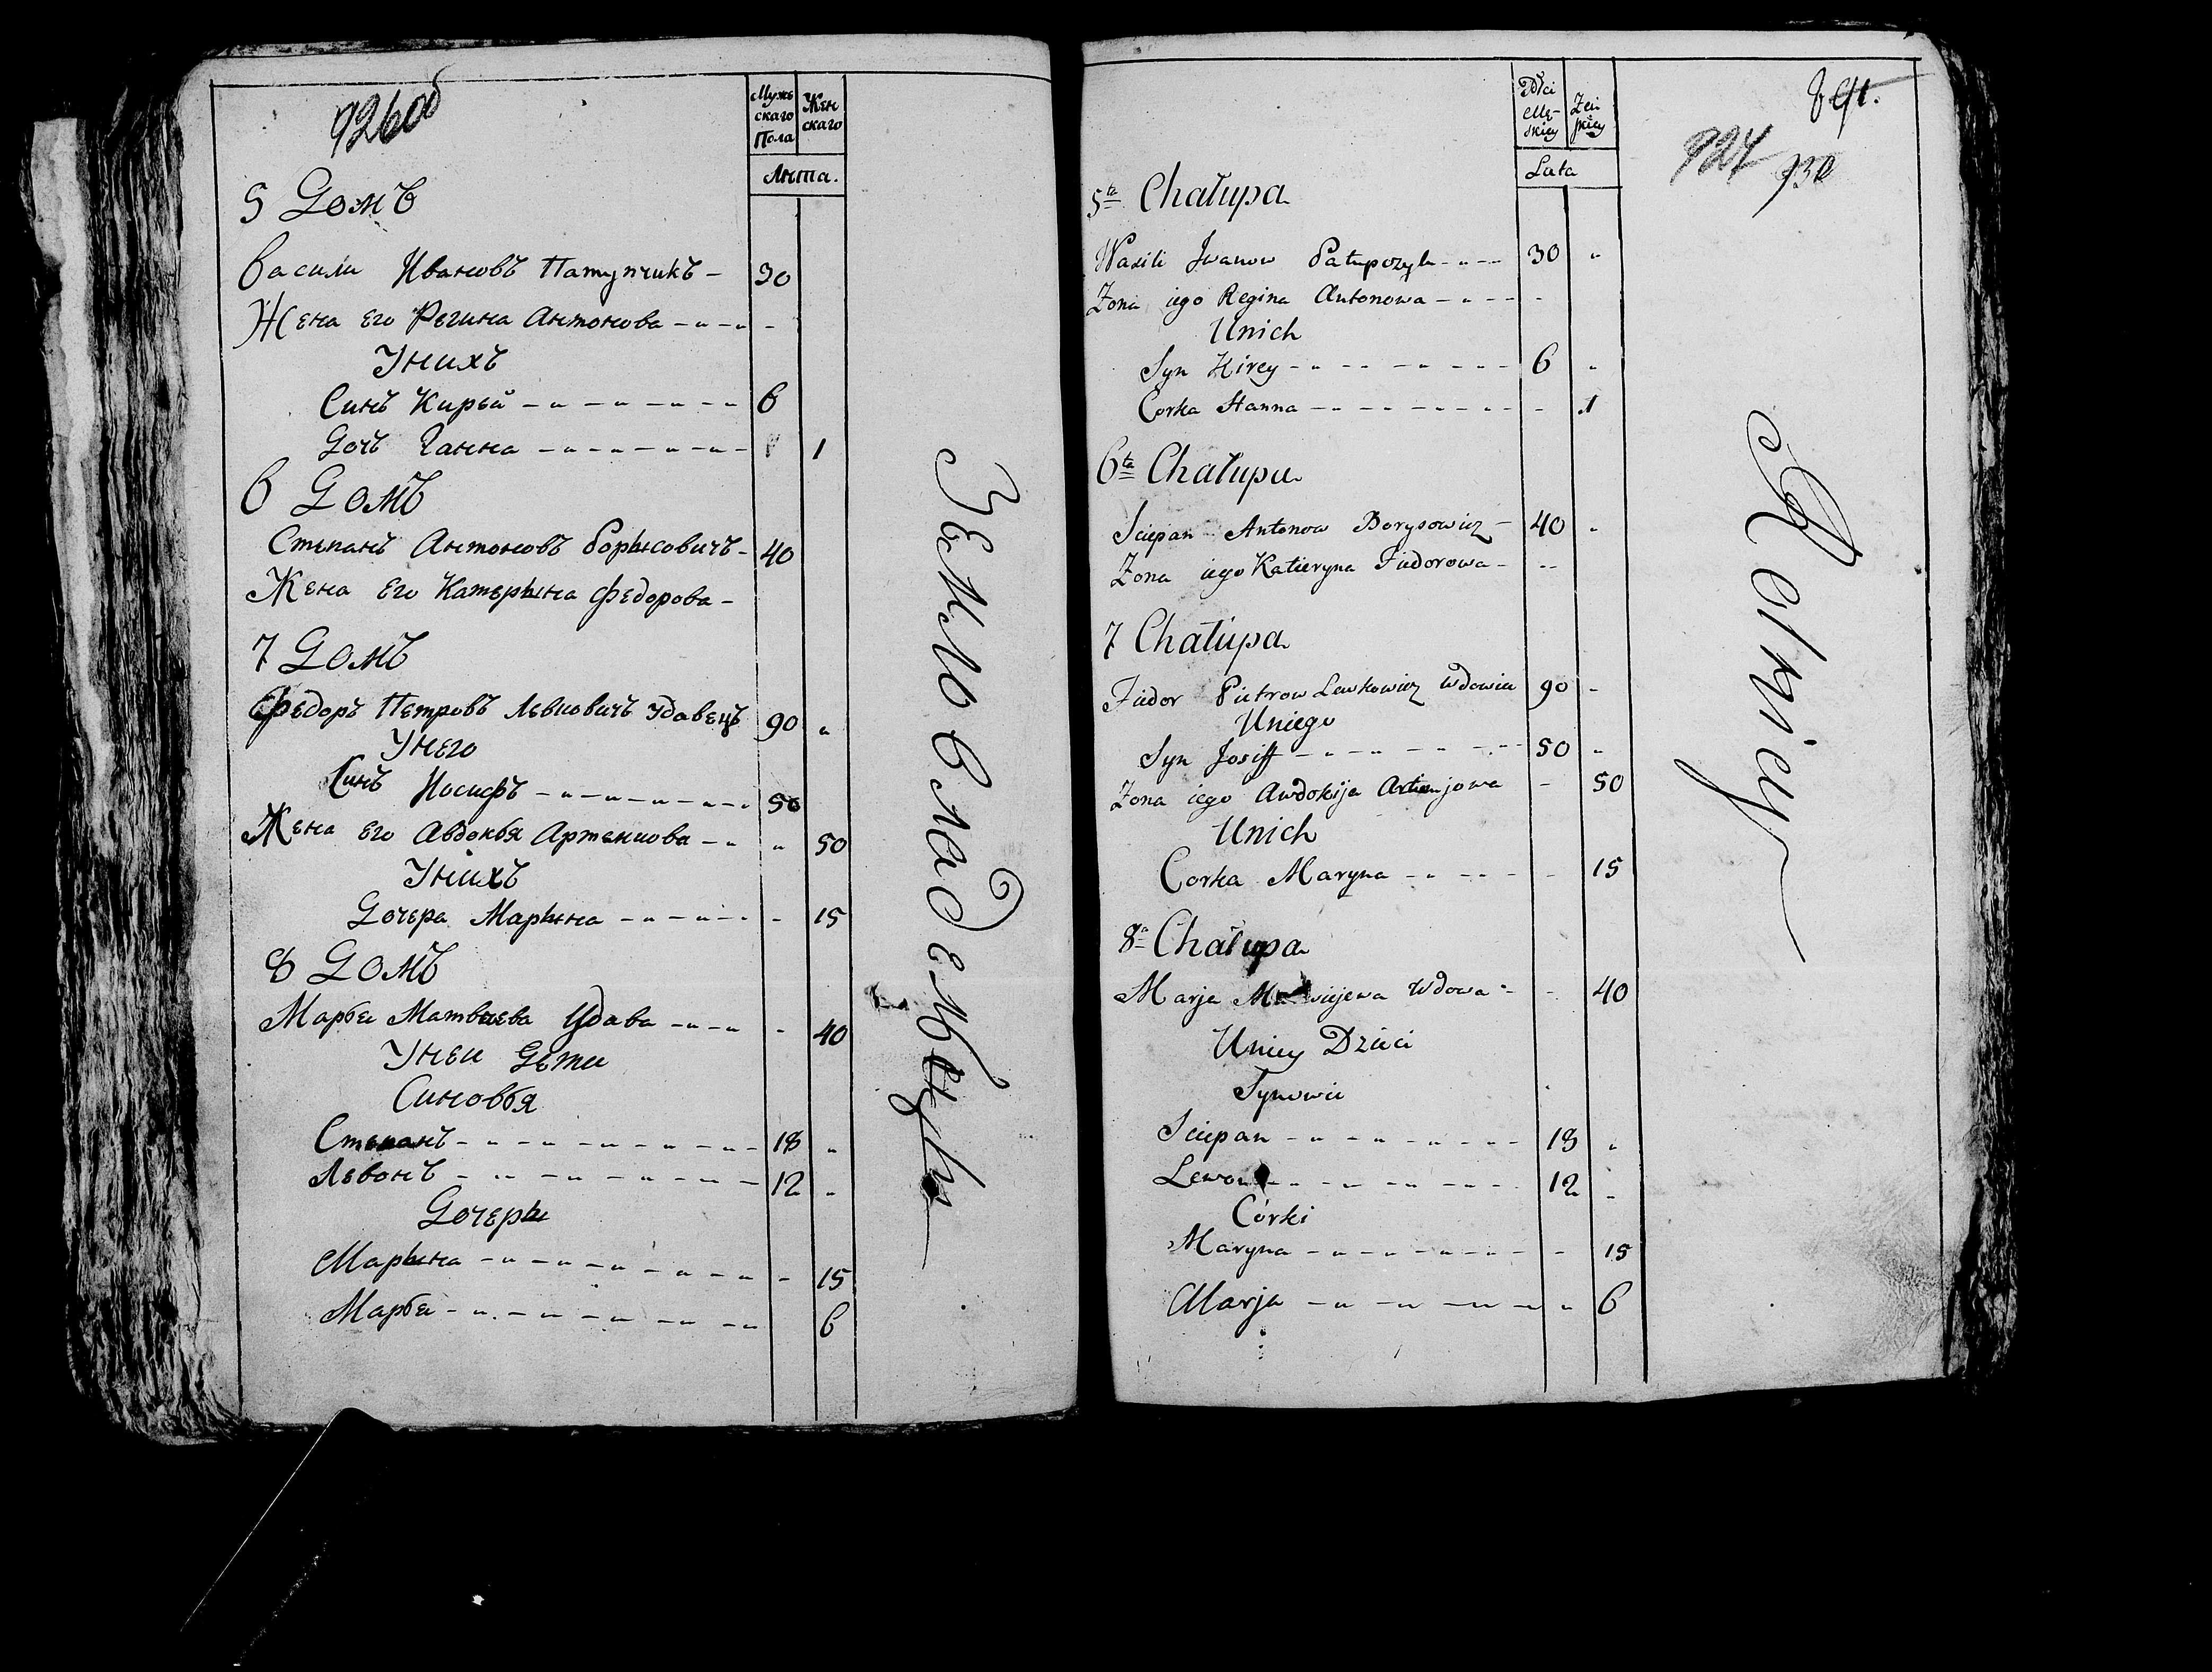 926об
Мужескаго Пола
Женскаго
Лѣта.
5 Домъ
Васили Ивановъ Патупчикъ - 30
Жена Его Регина Антонова - " - " -
Унихъ
Синъ Кирей - " - " - " - " 6
Дочъ Ганна - " - " - " - " - 1
6 Домъ
Степанъ Антоновъ Борысовичъ - 40
Жена Его Катерына Федорова -
7 Домъ
Федоръ Петровъ Левковичъ Удавецъ 90 "
Унего
Синъ Иосифъ - " - " - " - " 50
Жена Его Авдокъя Артемиова - " " 50
Унихъ
Дочера Марына - " - " - " - 15
8 Домъ
Маръя Матвиева Удава - " - " - 40
Унеи Дети
Синовъя
Степанъ - " - " - " - " - 18 "
Левонъ - " - " - " - " - 12 "
Дочеры
Марына - " - " - " - " - " - 15
Маръя - " - " - " - " 6
Землевладельцы
Płci Męskiey
Żeńskiey
Lata
891.
927
930
5ta Chałupa
Wasili Iwanow Patupczyk - " - 30 "
Zona iego Regina Antonowa - " - - -
Unich
Syn Kirey - " - - - " - - 6 "
Corka Hanna - - " - - - " - - - 1
6ta Chałupa
Sciepan Antonow Borysowicz - 40 "
Zona iego Katieryna Fiedorowa - --
7 Chałupa
Fiedor Pietrow Lewkowicz Wdowiec 90 -
Uniego
Syn Josiff - " - - " - - " - - 50 "
Zona iego Awdokija Artiemjowa - 50
Unich
Corka Maryna - " - - - - 15
8a Chałupa
Marja Matwiejewa Wdowa - - 40
Uniey Dzieci
Synowie
Sciepan - " - " - " - - 18 "
Lewon - " - - " - - - 12 "
Córki
Maryna - " - " - " - " - - 15
Marja - " - " - " - " 6
Rolnicy